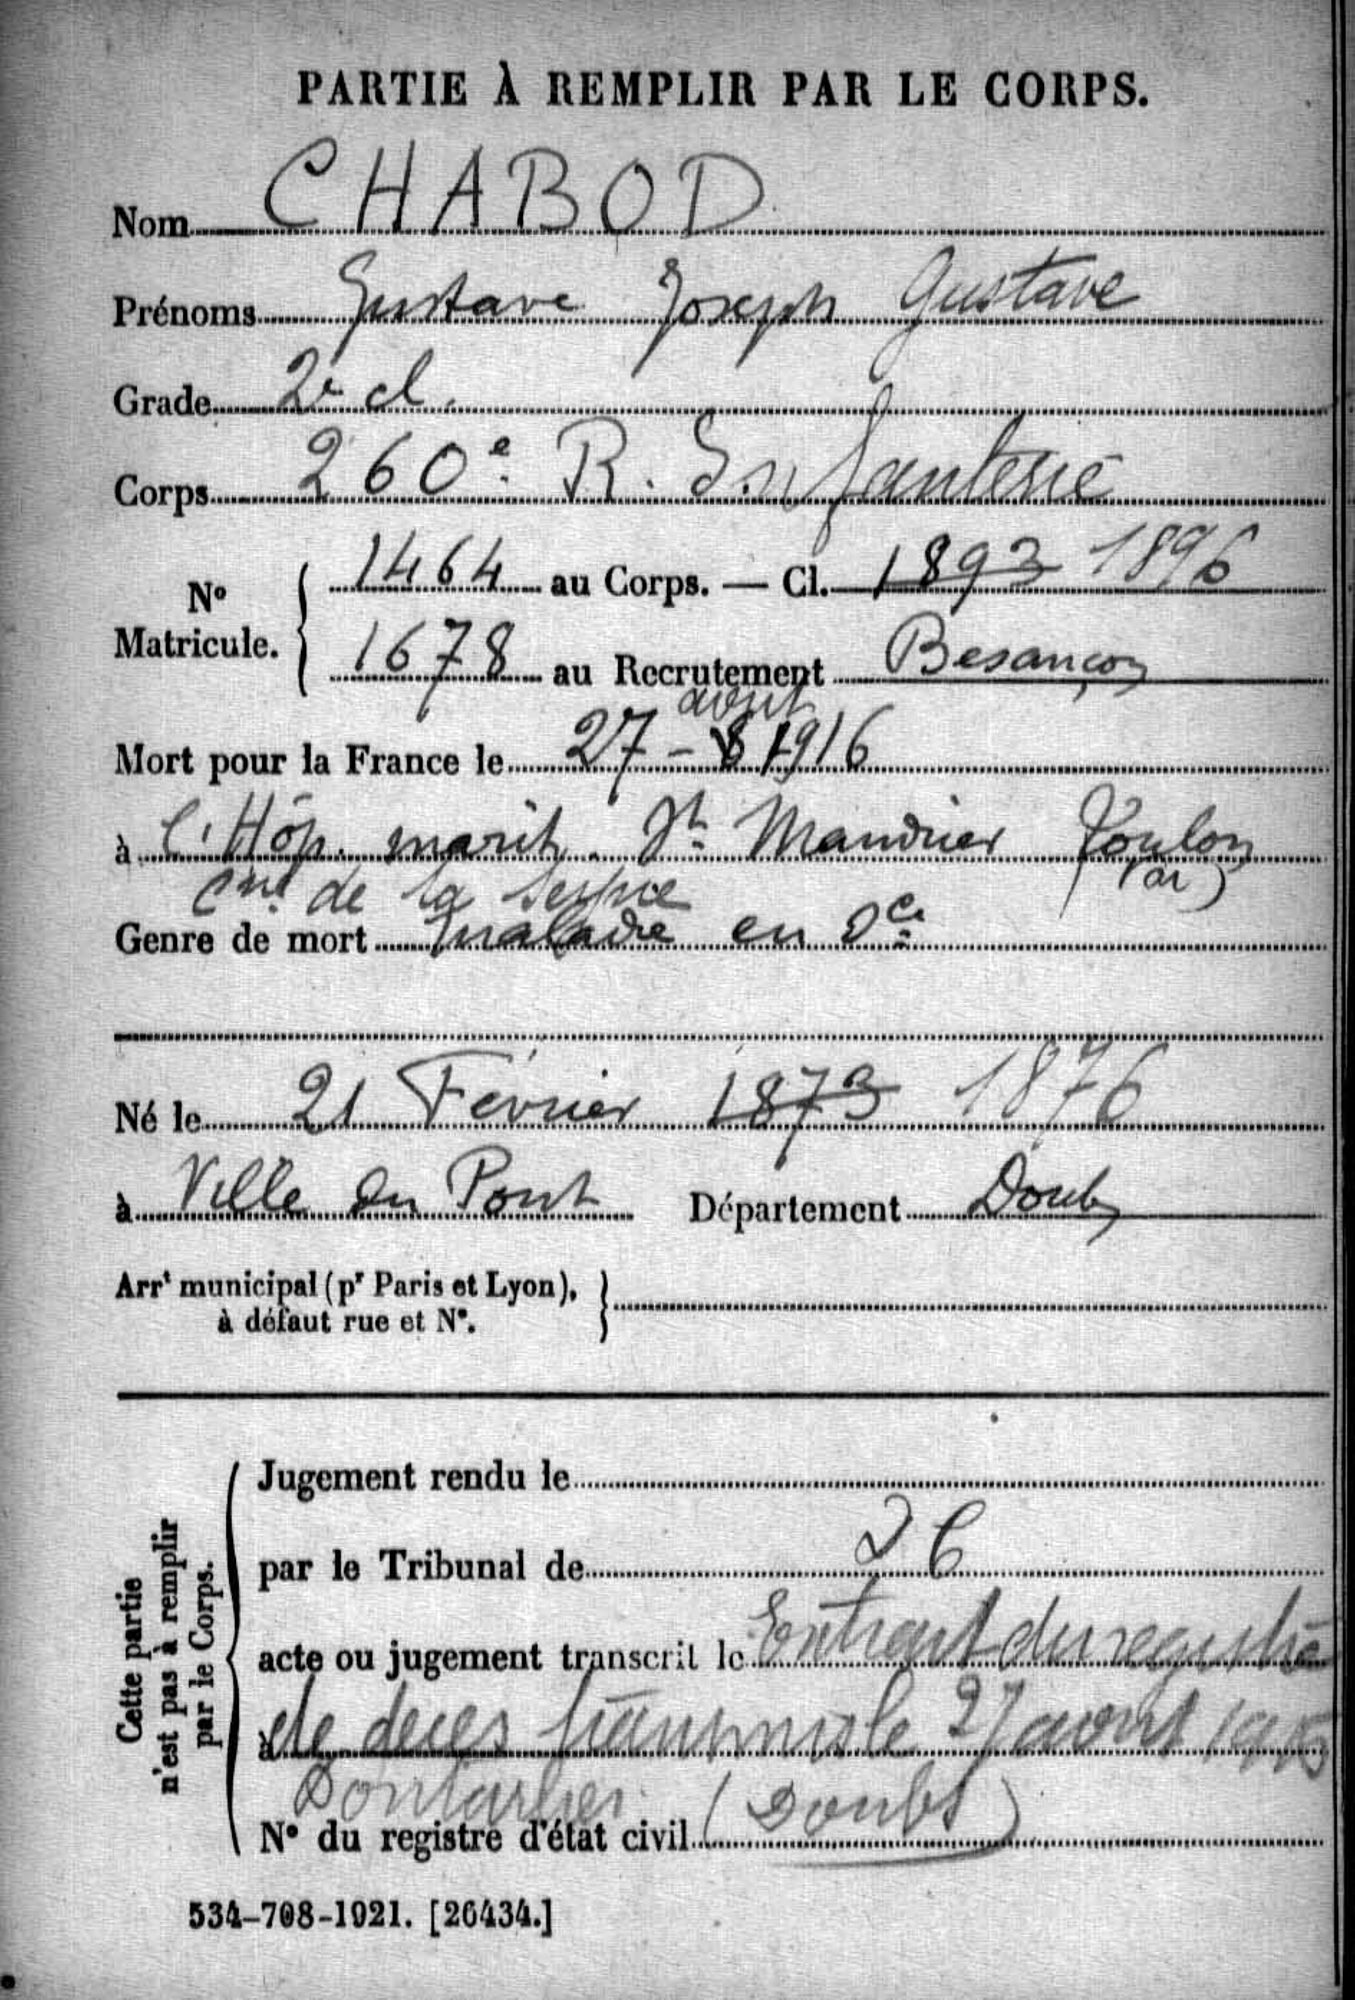 PARTIE À REMPLIR PAR LE CORPS.
Nom CHABOD
Prénoms Gustave Joseph Gustave
Grade 2e cl.
Corps 260e R. Infanterie
No Matricule. { 1464 au Corps. — Cl. 1893 1896
1678 au Recrutement Besançon
août
Mort pour la France le 27 - 8 1916
à l'Hôp. marit. St Mandrier Toulon
de la (Var)
Genre de mort maladie en sce
Né le 21 Février 1873 1876
à Ville du Pont Département Doubs
Arrt municipal (pr Paris et Lyon),
à défaut rue et No. }
Cette partie
n'est pas à remplir
par le Corps.
Jugement rendu le
par le Tribunal de
acte ou jugement transcrit le Extrait du registre
à de décès transmis le 27 août
Pontarlier (Doubs)
No du registre d'état civil
534-708-1921. [26434.]